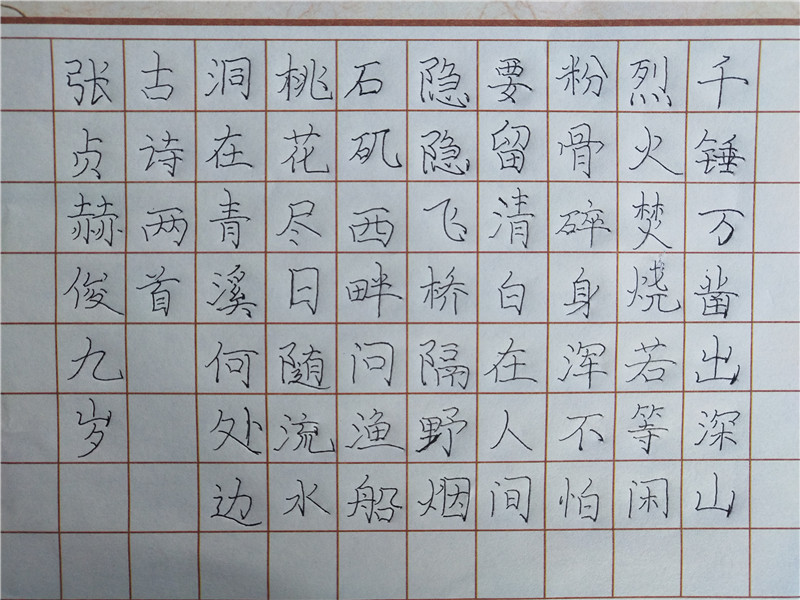 千锤万凿出深山
烈火焚烧若等闲
粉骨碎身浑不怕
要留清白在人间
隐隐飞桥隔野烟
石矶西畔问渔船
桃花尽日随流水
洞在青溪何处边
古诗两首
张贞赫俊九岁